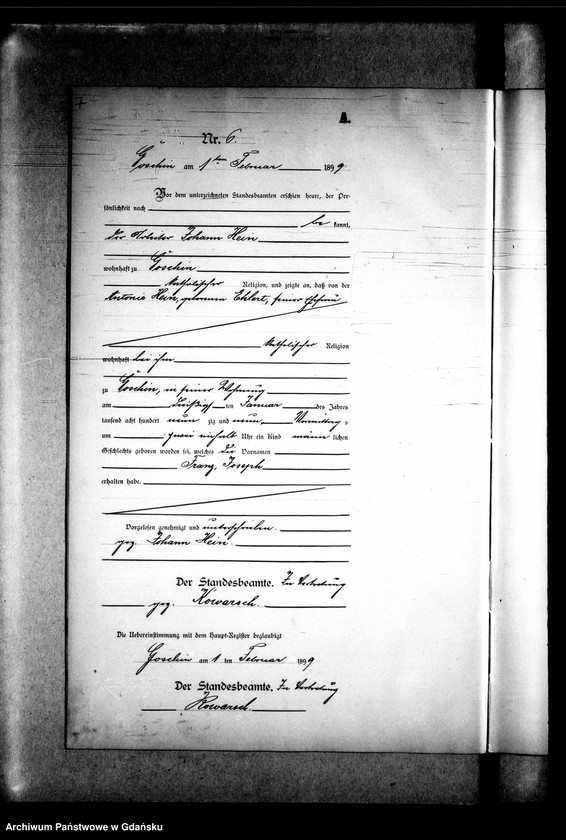 A.
Nr. 6.
Goschin am 1ten Februar 1899
Vor dem unterzeichneten Standesbeamten erschien heute, der Per-
sönlichkeit nach
be kannt,
der Arbeiter Johann Hein
wohnhaft zu Goschin
katholischer Religion, und zeigte an, daß von der
Antonie Hein, geborenen Ehlert, seiner Ehefrau
katholischer Religion
wohnhaft bei ihm
zu Goschin, in seiner Wohnung
am dreißigsten Januar des Jahres
tausend acht hundert neun zig und neun, Vormittags
um zwei einhalb Uhr ein Kind männ lichen
Geschlechts geboren worden sei, welches die Vornamen
Franz Joseph
erhalten habe.
Vorgelesen genehmigt und unterschrieben.
gez. Johann Hein.
Der Standesbeamte. In Vertretung
gez. Kowarsch.
Die Uebereinstimmung mit dem Haupt-Register beglaubigt
Goschin am 1 ten Februar 1899
Der Standesbeamte. In Vertretung
Kowarsch.
Archiwum Państwowe w Gdańsku